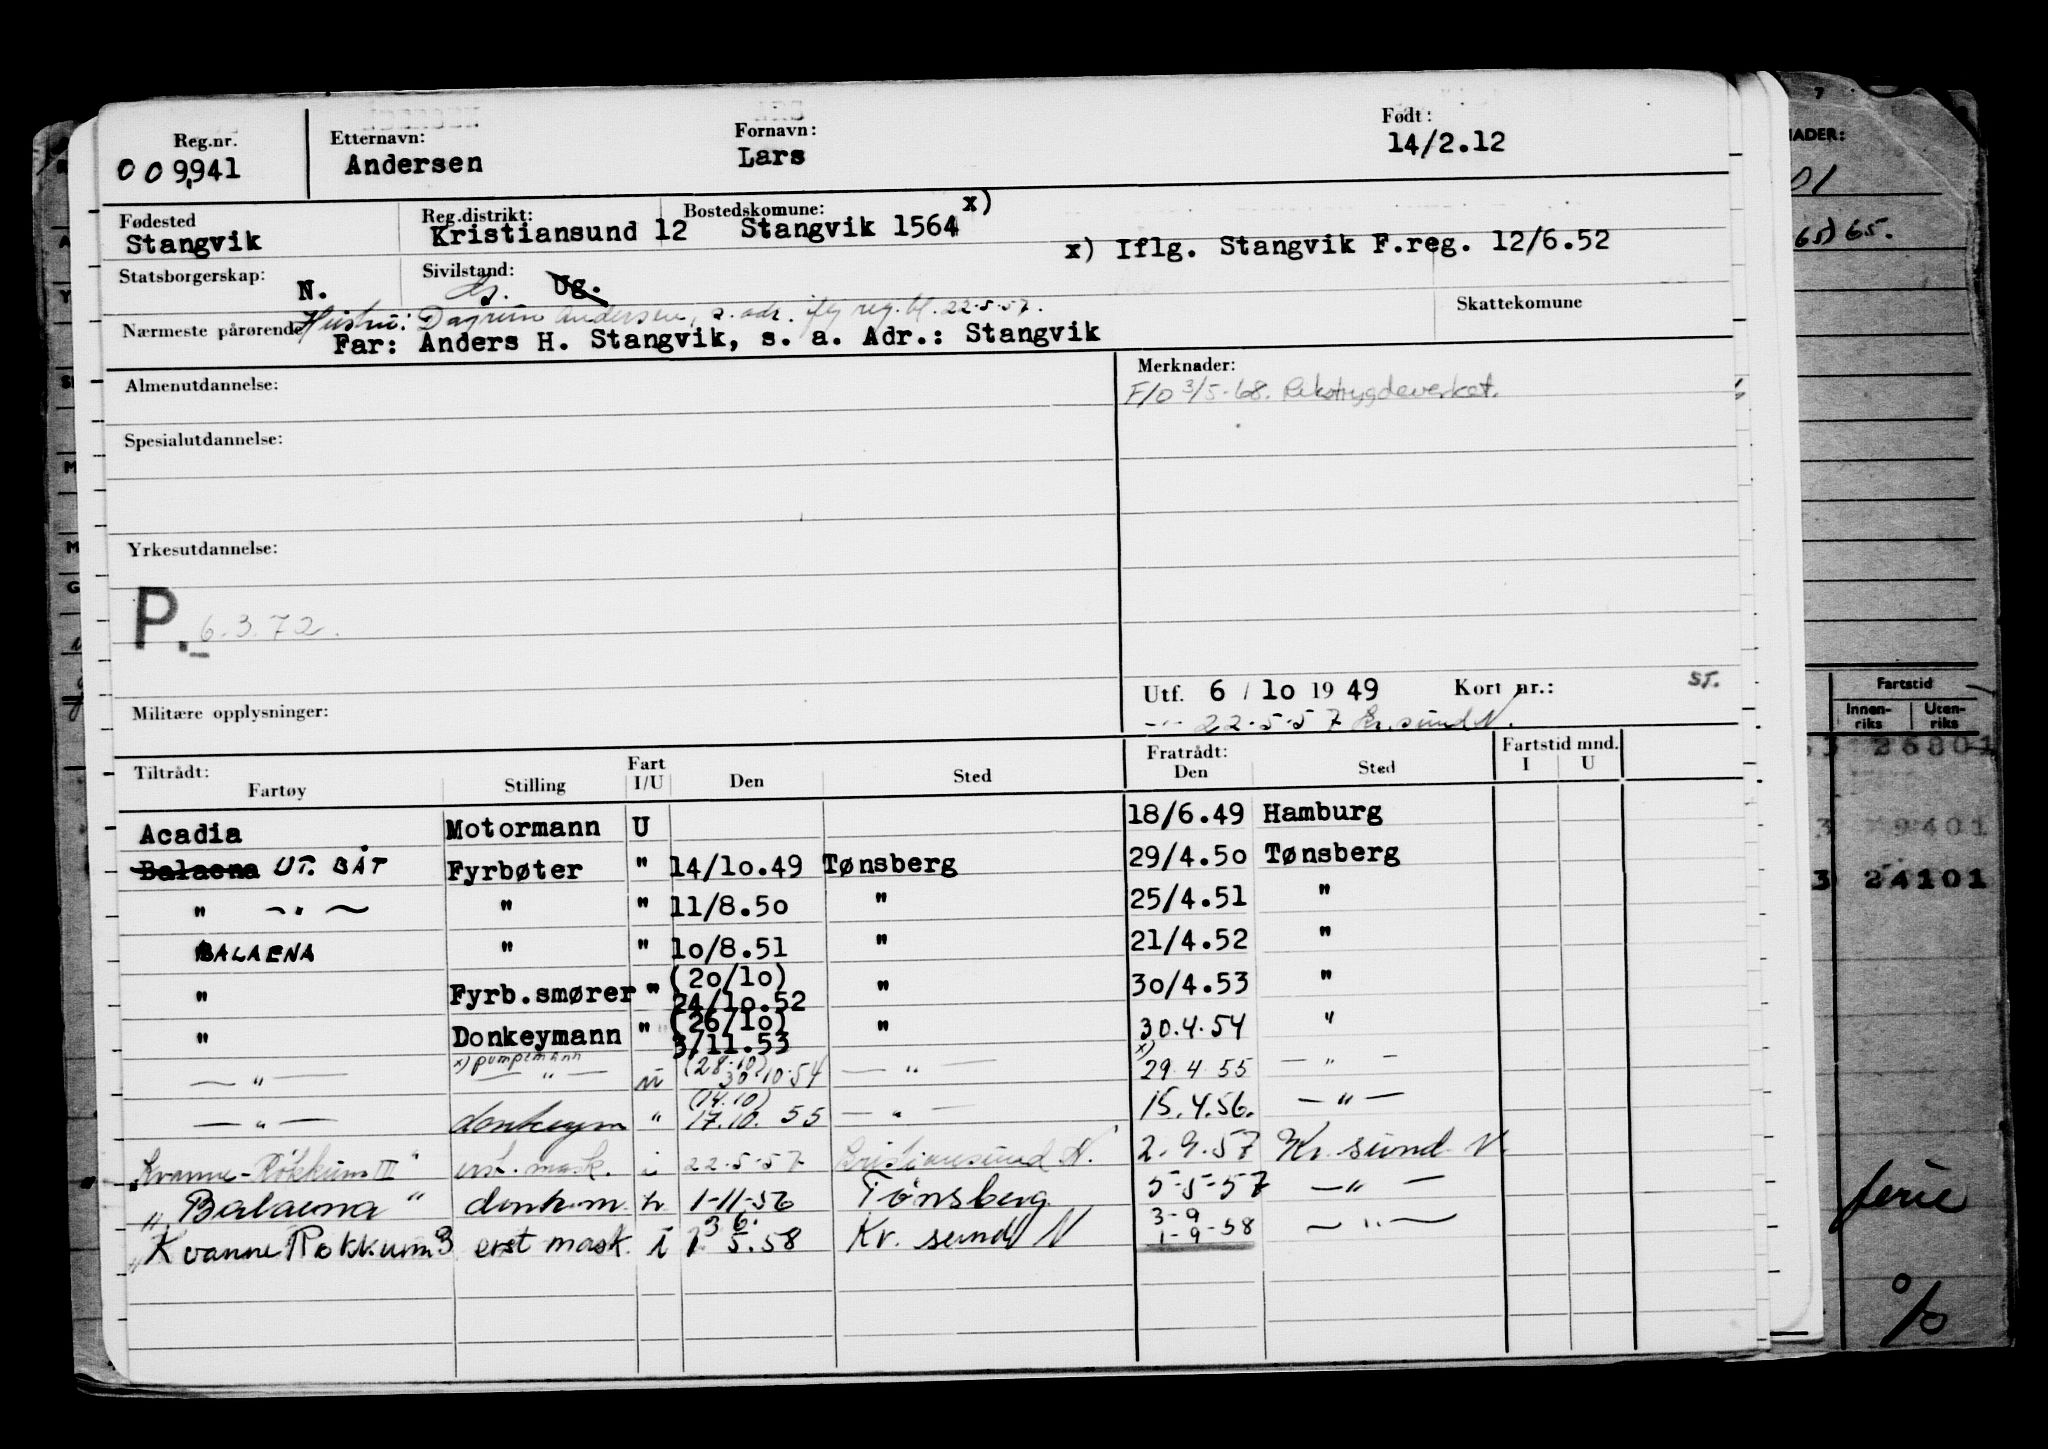 Reg.nr. Etternavn: Fornavn: Født:
009,941 Andersen Lars 14/2.12
Fødested Reg.distrikt: Bostedskomune: x)
Stangvik Kristiansund 12 Stangvik 1564
x) Iflg. Stangvik F.reg. 12/6.52
Statsborgerskap: N. Sivilstand: Ug.
Skattekomune
Nærmeste pårørende Hustru: Dagrun Andersen, s. adr. iflg reg.bl. 22-5-57.
Far: Anders H. Stangvik, s. a. Adr.: Stangvik
Almenutdannelse:
Merknader:
F/O 3/5-68. Rikstrygdeverket.
Spesialutdannelse:
Yrkesutdannelse:
P. 6.3.72.
Utf. 6 / 10 19 49 Kort nr.: ST.
Militære opplysninger:
-"- 22-5-57 Kr.sund N.
Tiltrådt: Fartøy Stilling Fart I/U Den Sted Fratrådt: Den Sted Fartstid mnd. I U
Acadia Motormann U 18/6.49 Hamburg
Balaena UT. BÅT Fyrbøter " 14/10.49 Tønsberg 29/4.50 Tønsberg
" -"- " " 11/8.50 " 25/4.51 "
BALAENA " " 10/8.51 " 21/4.52 "
" Fyrb.smører " (20/10) 24/10.52 " 30/4.53 "
" Donkeymann " (26/10) 3/11.53 " 30.4.54 "
-"- x) pumpemann -"- u (28.10) 30.10.54 -"- x) 29.4.55 -"-
-"- donkeym " (14.10) 17.10.55 -"- 15.4.56. -"-
"Kvanne-Røkkum III" erst. mask. i 22-5-57 Kristiansund N. 2.9.57 Kr.sund N.
"Balaena" donk.m. u 1-11-56 Tønsberg 5-5-57 -"-
"Kvanne Røkkum 3 erst mask. i 1 3 6. 5.58 Kr. sund N 3-9 1-9-58 -"-
7
01
65) 65.
Fartstid
Innen-riks Uten-riks
3 26801
3 29401
3 24101
ferie